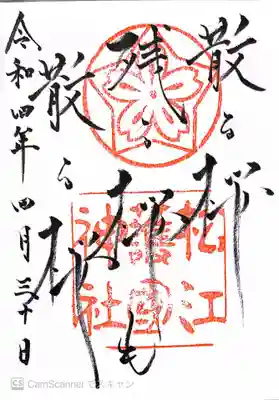 散る桜
残る桜も
散る桜
令和四年 四月三十日
松江
護國
神社
CS CamScanner でスキャン